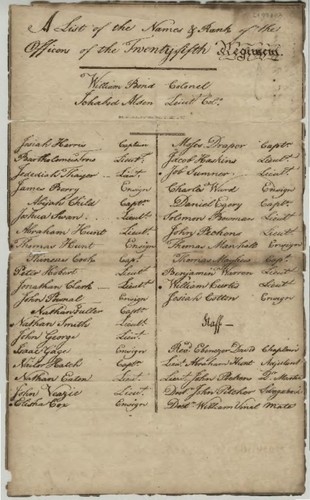 A List of the Names & Rank of the
Officers of the Twentyfifth Regiment
William Bond Colonel
Ichabod Alden Lieut Col.
Josiah Harris Captain
Bartholomew Lieut.
Jedediah Thayer Lieut.
James Berry Ensign
Abijah Child Capt.
Joshua Swan Lieut.
Abraham Hunt Lieut.
Thomas Hunt Ensign
Thomas Cook Capt.
Peter Lieut.
Jonathan Clark Lieut.
John Ensign
Nathan Fuller Capt.
Nathan Smith Lieut.
John George Lieut.
Isaac Gage Ensign
Nailer Hatch Capt.
Nathan Eaton Lieut.
John Lieut.
Elisha Cox Ensign
Moses Draper Capt.
Jacob Haskins Lieut.
Job Sumner Lieut.
Charles Ward Ensign
Daniel Egery Capt.
Solomon Bowman Lieut.
John Lieut.
Thomas Marshall Ensign
Thomas Capt.
Benjamin Warren Lieut.
William Lieut.
Josiah Cotton Ensign
Staff
Revd. Ebenezer David Chaplain
Lieut. Abraham Hunt
Lieut. John Q. Master
Doct. John Surgeon
Doct. William Mate